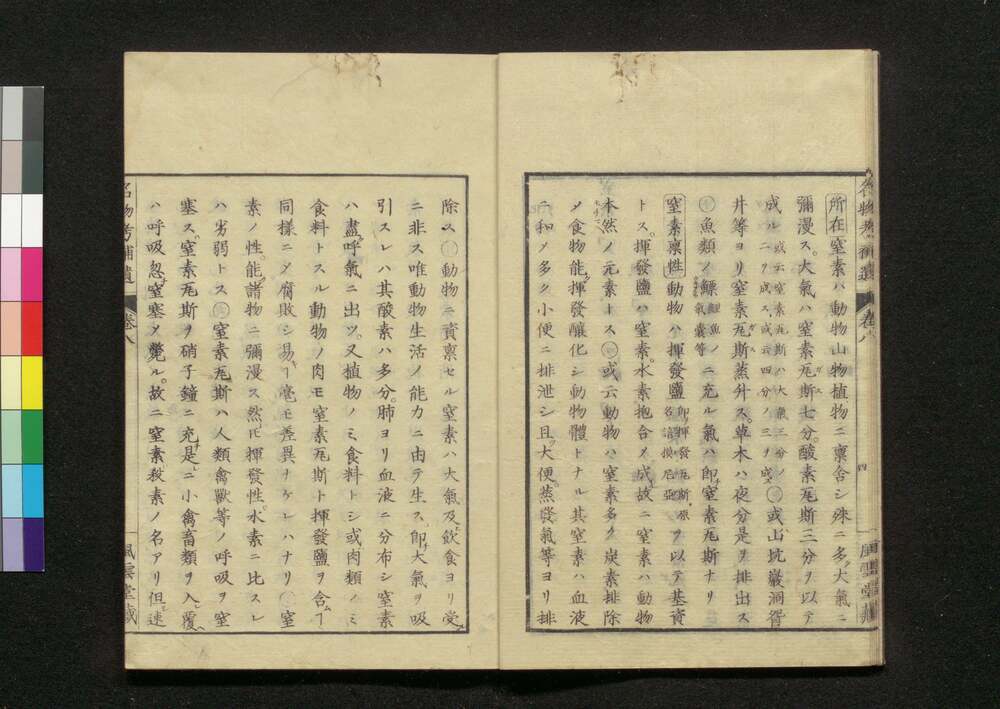 名物考補遺 卷八 四 風雲堂藏
所在窒素ハ動物山物植物ニ稟含シ殊ニ多ク大氣ニ
彌漫ス。大氣ハ窒素瓦斯七分。酸素瓦斯三分ヲ以テ
成ル 或云窒素瓦斯ハ大氣三分ノ二ヲ成ス。或云四分ノ三ヲ成ス 或ハ山坑巖洞眢
井等ヨリ窒素瓦斯蒸升ス。草木ハ夜分是ヲ排出ス
魚類ノ鰾 鯉魚ノ氣囊等 ニ充ル氣ハ即窒素瓦斯ナリ
窒素稟性動物ハ揮發鹽 即揮發瓦斯。原名諳摸尼亞 ヲ以テ基資
トス。揮發鹽ハ窒素。水素抱合ノ成。故ニ窒素ハ動物
本然ノ元素トス 或云動物ハ窒素多ク炭素排除
メ食物能揮發釀化シ動物體トナル其窒素ハ血液
ニ和メ多ク小便ニ排泄シ且大便。蒸發氣等ヨリ排
除ス 動物ニ資稟セル窒素ハ大氣及飲食ヨリ受
ニ非ス唯動物生活ノ能力ニ由テ生ス。即大氣ヲ吸
引スレハ其酸素ハ多分。肺ヨリ血液ニ分布シ窒素
ハ盡呼氣ニ出ツ。又植物ノミ食料トシ或肉類ノミ
食料トスル動物ノ肉モ窒素瓦斯ト揮發鹽ヲ含ム
同樣ニメ腐敗シ易一毫モ差異ナケレハナリ 窒
素ノ性。能諸物ニ彌漫ス然トモ揮發性。水素ニ比スレ
ハ劣弱トス 窒素瓦斯ハ人類禽獸等ノ呼吸ヲ窒
塞ス。窒素瓦斯ヲ硝子鐘ニ充是ニ小禽畜類ヲ入覆
ハ呼吸忽窒塞メ斃ル。故ニ窒素殺素ノ名アリ但速
名物考補遺 卷八 風雲堂藏